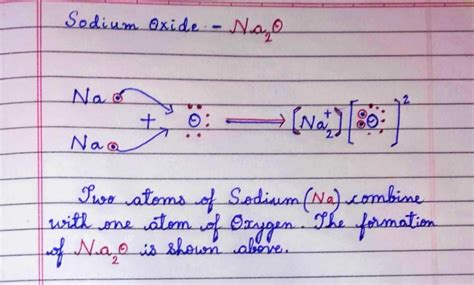 Sodium Oxide - Na₂O
Na
+ O → [Na₂⁺] [O]²
Na
Two atoms of Sodium (Na) combine
with one atom of Oxygen. The formation
of Na₂O is shown above.